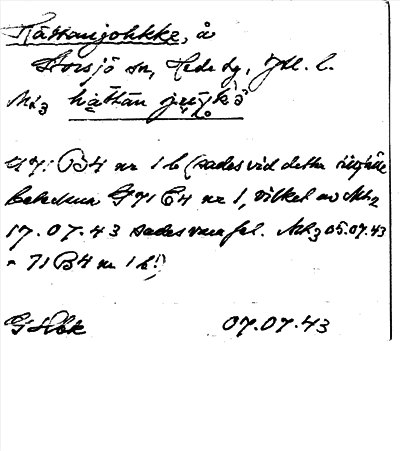 Hättanjohkke, å
Storsjö sn, Hede tg, Jtl. l.
Mt3 hättan jɯkə
G7: B4 nr 1 b (sades vid detta tillfälle
beteckna G71 C4 nr 1, vilket av Mt2
17.07.43 sades vara fel. Mt3 05.07.43
= 71 B4 nr 1 b!)
G Hbk 07.07.43